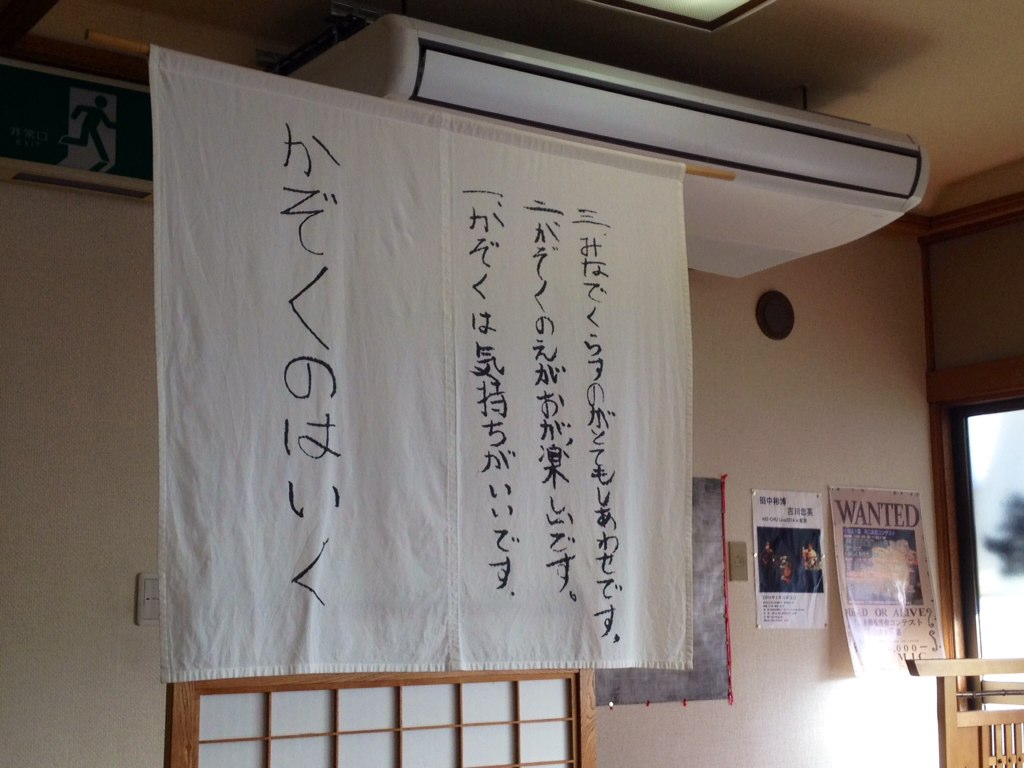 非常口
EXIT
かぞくのはいく
一、かぞくは気持ちがいいです.
二、かぞくのえがおが、楽しいです。
三、みなでくらすのがとてもしあわせです。
田中彬博
吉川忠英
WANTED
DEAD OR ALIVE